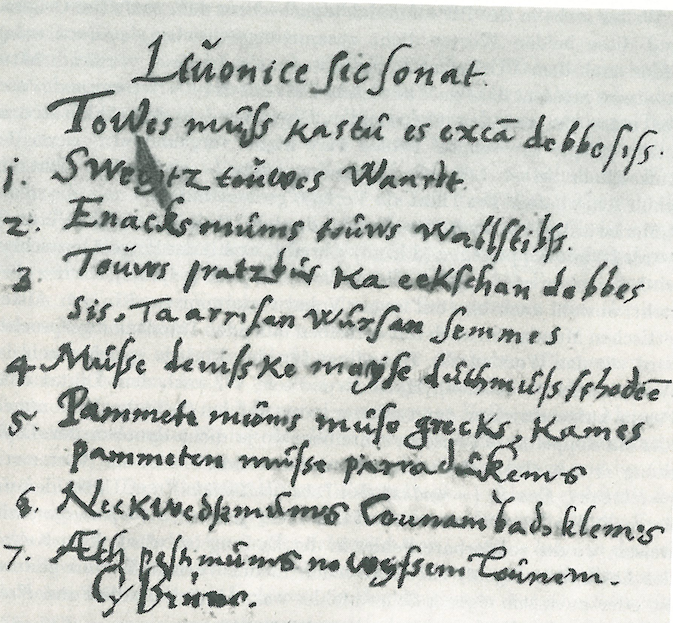 Liuonice sic sonat.
Towes mûss kastû es excā debbesiss.
1. Swetitz toûwes Waardt.
2. Enacks mûms toûws wallstibs.
3 Toûws pratz bûs ka eekschan debbes
sis, Ta arrisan wursan semmes
4 Musse deniss ke mayse dûthmûss schodeē
5. Pammete mûms mûse grecks, Kames
pammeten mûsse parradûkems
6. Neckwedsemûms Lounam badeklems
7. Æth pestimûms no wyssem Loûnem.